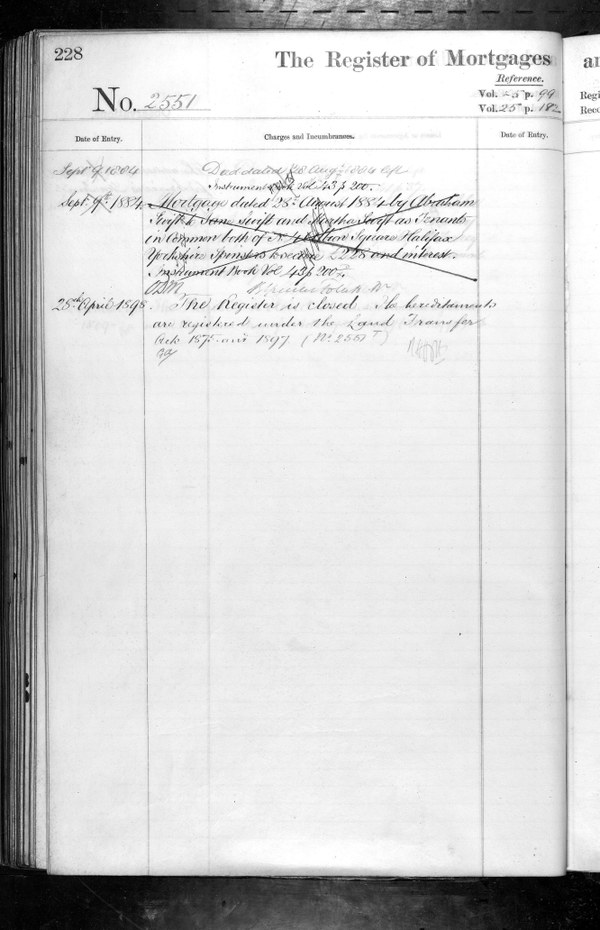 228
The Register of Mortgages
Reference.
No. 2551
Vol. 25 p. 99
Vol. 25 p. 182
Date of Entry.
Charges and Incumbrances.
Date of Entry.
Sept 9 1884
Deed dated 28 Augt 1884
Instrument Book Vol 43 p 200.
Sept. 9th 1884
Mortgage dated 28th August 1884 by Abraham
Swift to Jane Swift and Martha Swift as Tenants
in Common both of Square Halifax
Yorkshire Spinsters to secure £228 and interest.
Instrument Book Vol 43 p 200.
28th April 1898.
The Register is closed The hereditaments
are registered under the Land Transfer
Acts 1875 and 1897 (No. 2551
an
Regi
Reco